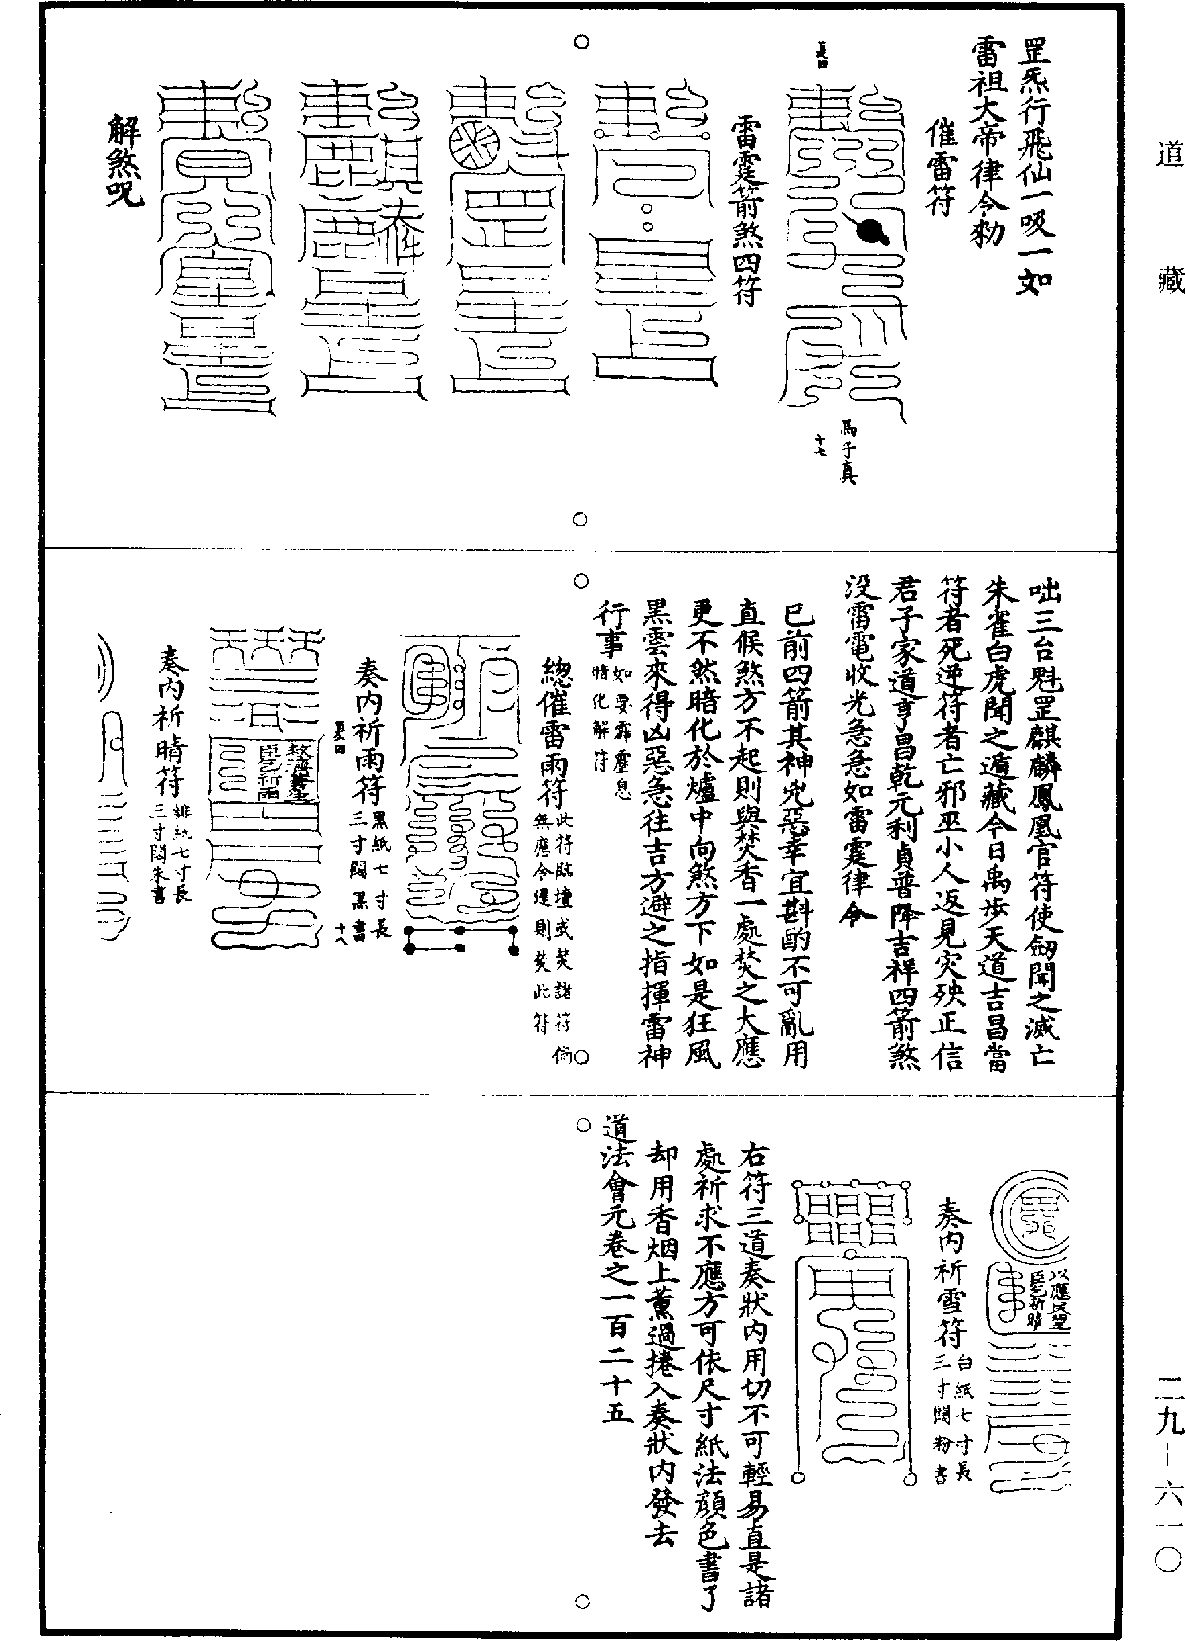 道藏
罡炁行飛仙一吸一如
雷祖大帝律令勑
催雷符
馬子真
十七
雷霆箭煞四符
解煞呪
咄三台魁罡麒麟鳳凰官符使劒聞之滅亡
朱雀白虎聞之遁藏今日禹步天道吉昌當
符者死逆符者亡邪巫小人返見灾殃正信
君子家道亨昌乾元利貞普降吉祥四箭煞
没雷電收光急急如雷霆律令
已前四箭其神兇惡幸宜斟酌不可亂用
直候煞方不起則與焚香一處焚之大應
更不然暗化於爐中向煞方下如是狂風
黑雲來得凶惡急往吉方避之指揮雷神
行事如要霹靂息
暗化解符
總催雷雨符此符臨壇或焚諸符倘
無應令遲則焚此符
奏內祈雨符黑紙七寸長
三寸闊黑書
十八
致濟羣生
臣乞祈雨
奏內祈晴符緋紙七寸長
三寸闊朱書
以應民望
臣乞祈晴
奏內祈雪符白紙七寸長
三寸闊粉書
右符三道奏狀內用切不可輕易直是諸
處祈求不應方可依尺寸紙法顔色書了
却用香烟上薰過捲入奏狀內發去
道法會元卷之一百二十五
二九—六一〇